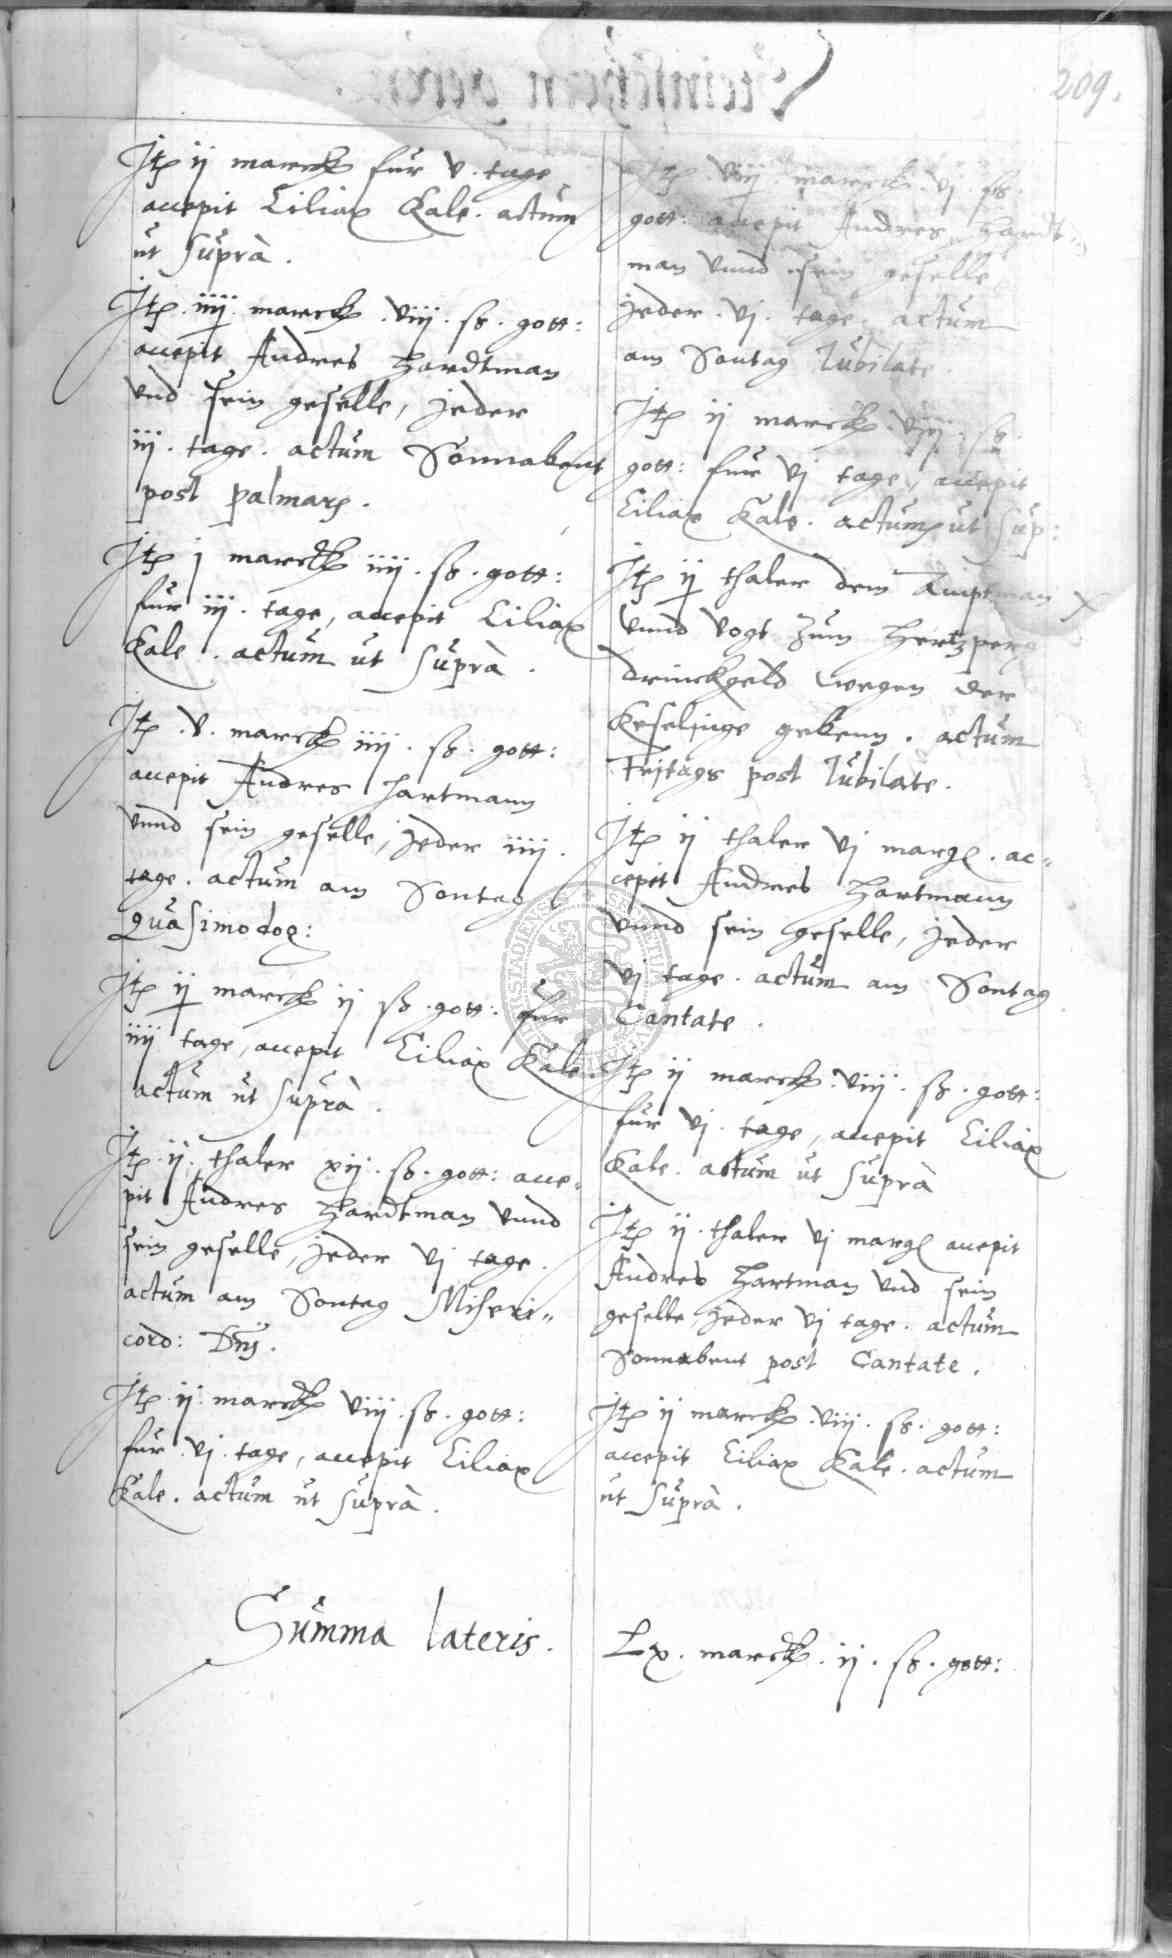 209.
Jtē ij marck fur v. tage
accepit Ciliax Kale. actum
ut suprà.
Jtē. iiij. marck. viij. ß. gott:
accepit Andres Hardtman
vnd sein geselle, jeder
iij. tage. actum Sonnabent
post palmarū.
Jtē j marck iiij. ß. gott:
fur iij. tage, accepit Ciliax
Kale. actum ut suprà.
Jtē. v. marck iiij. ß. gott:
accepit Andres Hartmann
vnnd sein geselle, jeder iiij.
tage. actum am Sontag
quasimodog:
Jtē ij marck ij ß. gott: fur
iiij tage, accepit Ciliax Kale.
actum ut suprà.
Jtē. ij. thaler xij. ß. gott: acce=
pit Andres Hardtman vnnd
sein geselle, jeder vj tage.
actum am Sontag Miseri=
cord: Dnj.
Jtē. ij. marck viij. ß. gott:
fur. vj. tage, accepit Ciliax
Kale. actum ut suprà.
Jtē. viij. marck. vj. ß.
gott: accepit Andres Hardt=
man vnnd sein geselle
jeder. vj. tage. actum
am Sontag Jubilate.
Jtē ij marck. viij. ß
gott: fur vj tage, accepit
Ciliax Kale. actum ut sup:
Jtē ij thaler dem Amptman
vnnd Vogt zum Hertzperg
drinckgeld wegen der
Keselinge gebenn. actum
Frijtags post Jubilate.
Jtē ij thaler vj margl. ac=
cepit Andres Hartmann
vnnd sein geselle, jeder
vj tage. actum am Sontag
Cantate.
Jtē ij marck. viij. ß. gott:
fur vj. tage, accepit Ciliax
Kale. actum ut suprà
Jtē ij. thaler vj margl accepit
Andres Hartman vnd sein
geselle, jeder vj tage. actum
Sonnabent post Cantate.
Jtē ij marck. viij. ß. gott:
accepit Ciliax Kale. actum
ut suprà.
Summa lateris. Lx. marck. ij. ß. gott: